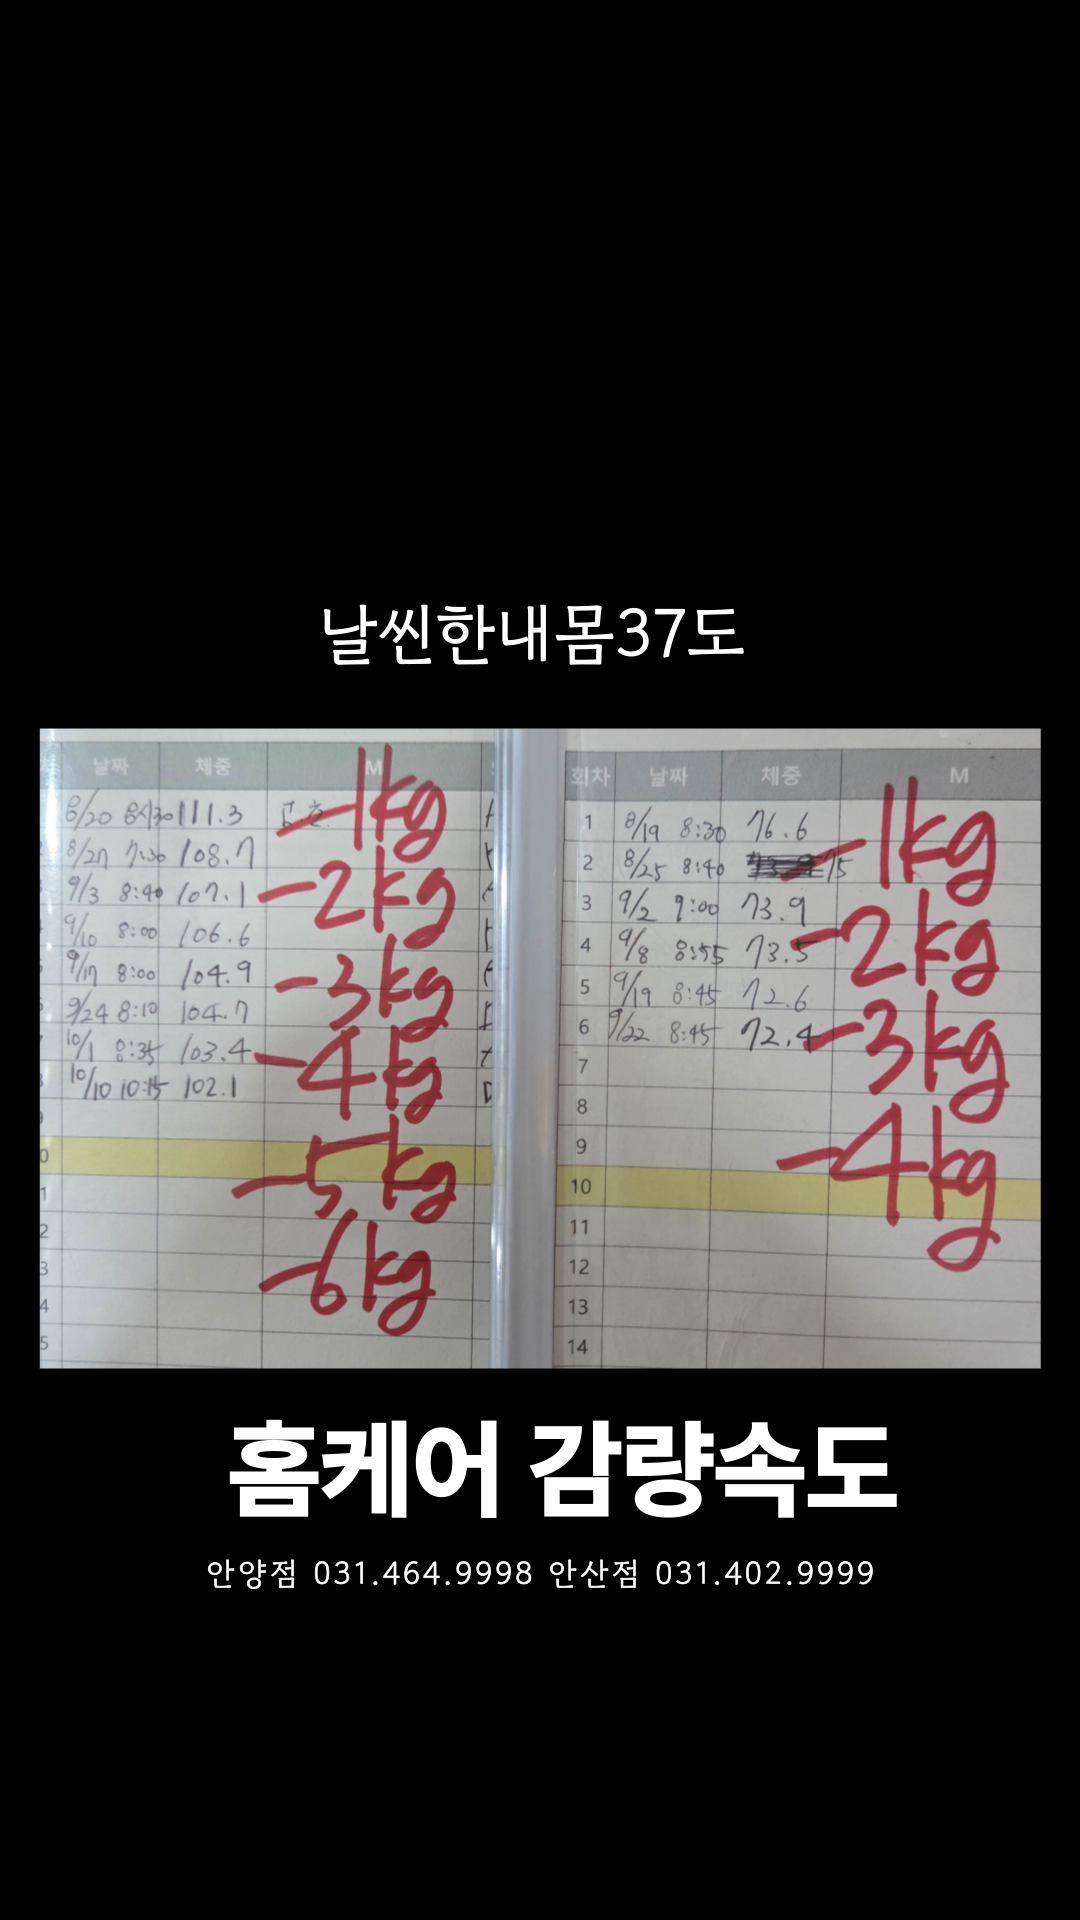 날씬한내몸37도
날짜 체중 M
8/20 8시30 111.3
8/27 7:30 108.7
9/3 8:40 107.1
9/10 8:00 106.6
9/17 8:00 104.9
9/24 8:10 104.7
10/1 8:35 103.4
10/10 10:15 102.1
-1kg
-2kg
-3kg
-4kg
-5kg
-6kg
회차 날짜 체중 M
1 8/19 8:30 76.6
2 8/25 8:40 75
3 9/2 9:00 73.9
4 9/8 8:55 73.5
5 9/19 8:45 72.6
6 9/22 8:45 72.4
7
8
9
10
11
12
13
14
-1kg
-2kg
-3kg
-4kg
홈케어 감량속도
안양점 031.464.9998 안산점 031.402.9999